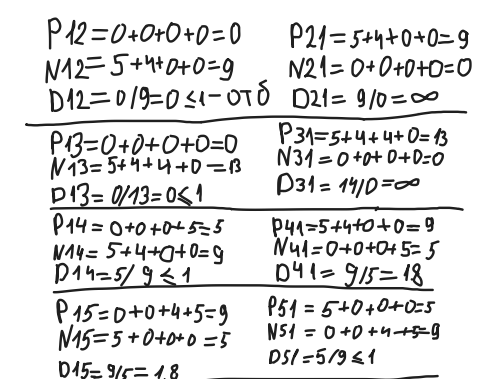 P12=0+0+0+0=0
N12=5+4+0+0=9
D12=0/9=0≤1-отб
P21=5+4+0+0=9
N21=0+0+0+0=0
D21=9/0=∞
P13=0+0+0+0=0
N13=5+4+4+0=13
D13=0/13=0≤1
P31=5+4+4+0=13
N31=0+0+0+0=0
D31=14/0=∞
P14=0+0+0+5=5
N14=5+4+0+0=9
D14=5/9≤1
P41=5+4+0+0=9
N41=0+0+0+5=5
D41=9/5=18
P15=0+0+4+5=9
N15=5+0+0+0=5
D15=9/5=1,8
P51=5+0+0+0=5
N51=0+0+4+5=9
D51=5/9≤1